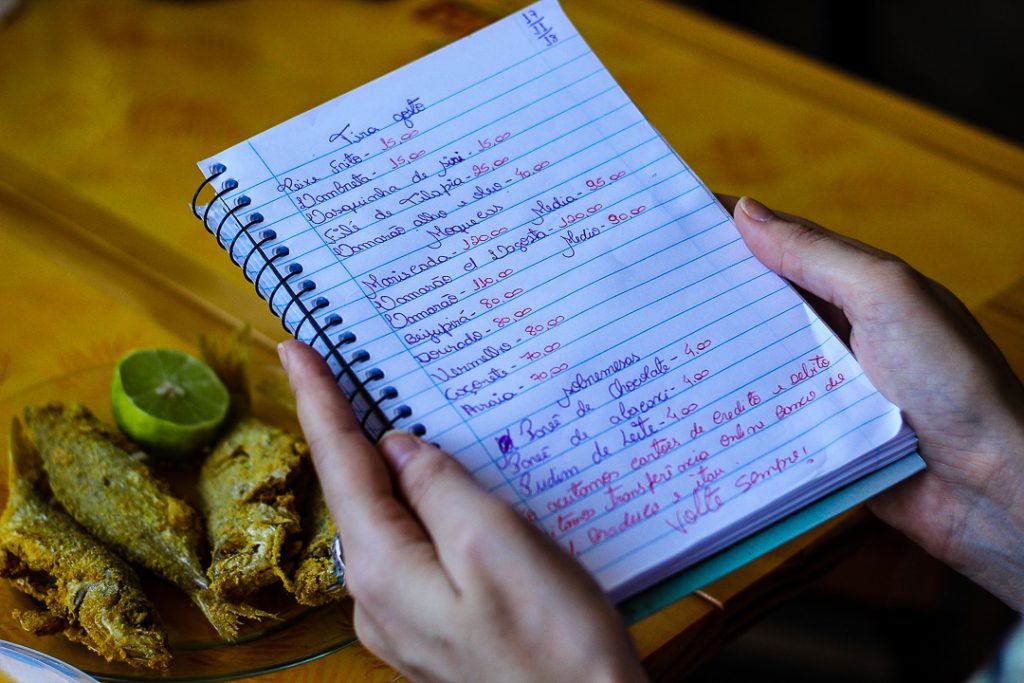 17
11
18
Tira gosto
Peixe Frito - 15,00
Vambreta - 15,00
Casquinha de siri - 15,00
Filé de Tilapia - 25,00
Camarão alho e oleo - 40,00
Moquecas
Mariscada - 120,00 Média - 95,00
Camarão c/ Lagosta - 120,00
Camarão - 110,00 Medio - 90,00
Beijupirá - 80,00
Dourado - 80,00
Vermelho - 80,00
Caçonete - 70,00
Arraia - 70,00
sobremesas
Bonê de Chocolate - 4,00
Bonê de abacaxi - 4,00
Pudim de Leite - 4,00
acutamos cartões de credito e debito
transferência online banco do
Bradesco e itau
Volte sempre!